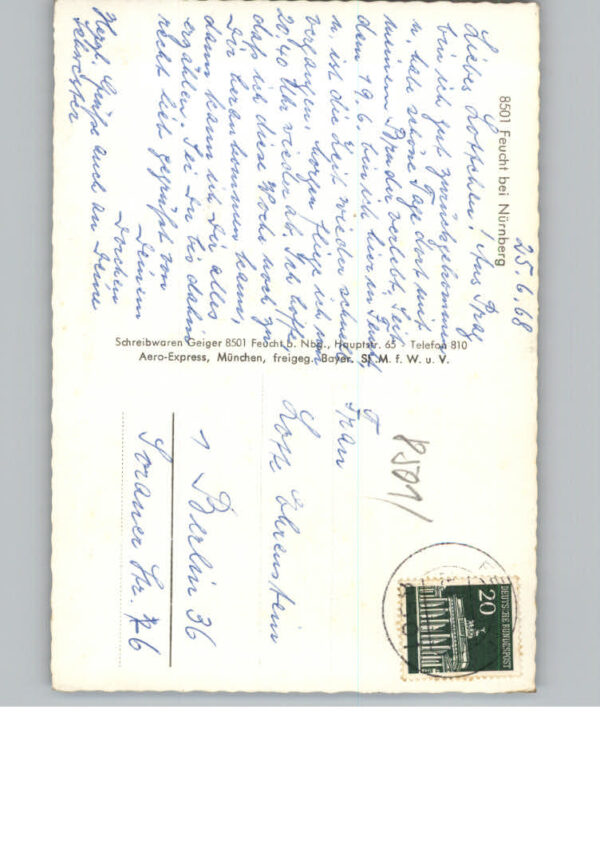 8501 Feucht bei Nürnberg
25.6.68
Liebes Lottchen! Aus Prag
bin ich gut zurückgekommen
u. habe schöne Tage dort mit
meinem Bruder verlebt. Seit
dem 19.6. bin ich hier in Feucht
u. ist die Zeit wieder schnell
vergangen. Morgen fliege ich um
20,40 Uhr wieder ab. Ich hoffe,
daß ich diese Woche noch zu
Dir herankommen kann,
dann kann ich Dir alles
erzählen. Sei Du bis dahin
recht lieb gegrüßt von
Deinem
Dorchen
Herzl. Grüße auch an Deine
Schwester
Schreibwaren Geiger 8501 Feucht b. Nbg., Hauptstr. 65 - Telefon 810
Aero-Express, München, freigeg. Bayer. St. M. f. W. u. V.
Frau
Lotte Ehrenstein
1 Berlin 36
Sorauer Str. 26
8501/
20
DEUTSCHE BUNDESPOST